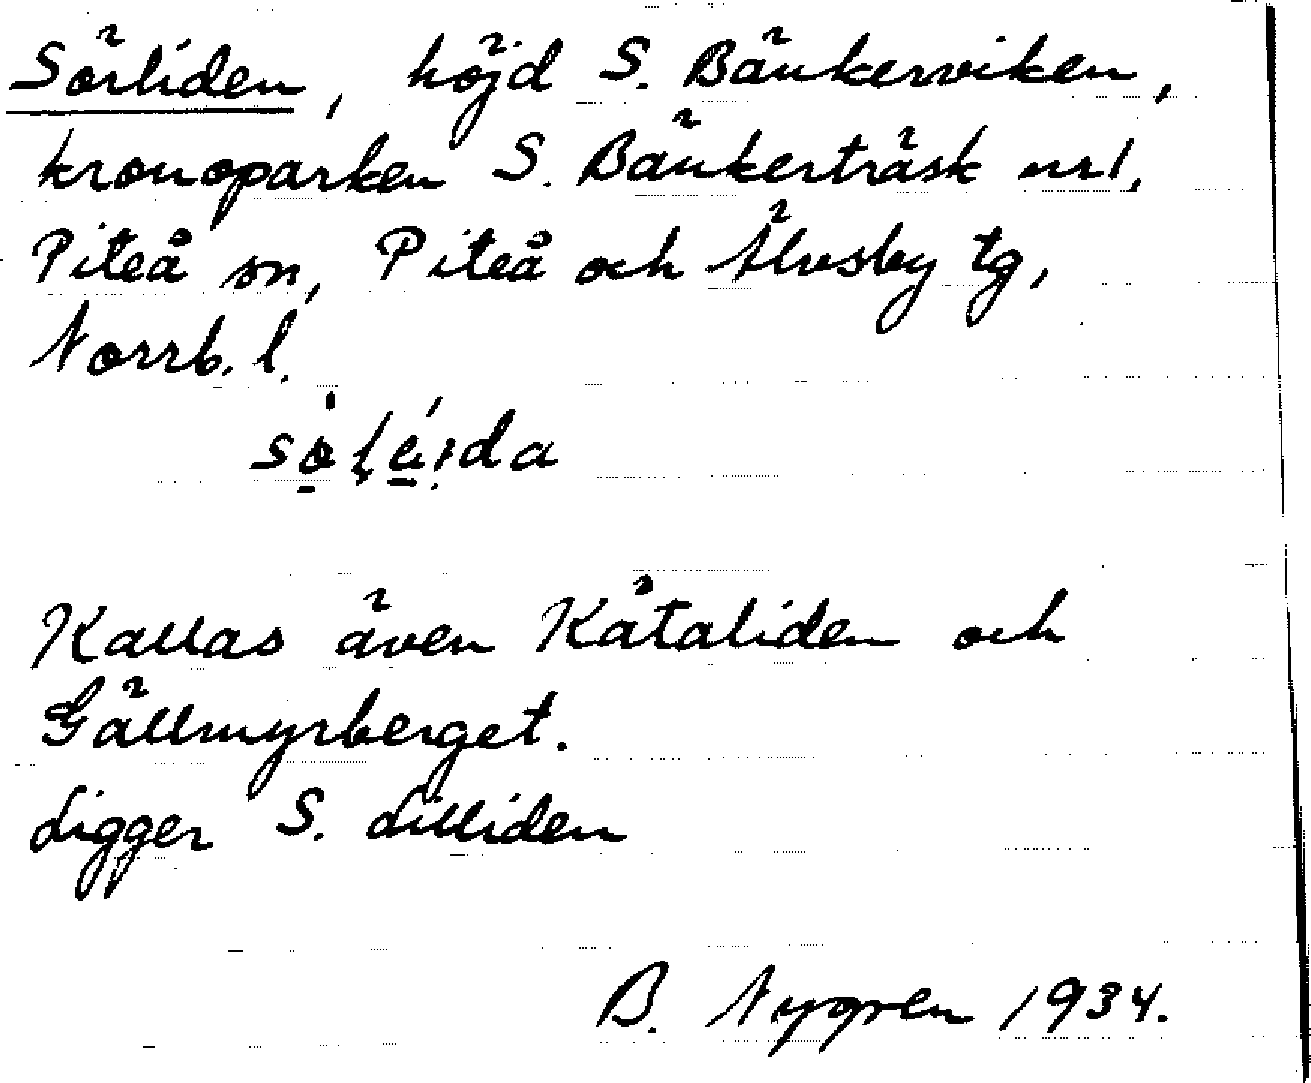 Sörliden, höjd S. Bänkerviken,
kronoparken S. Bänkerträsk nr 1,
Piteå sn, Piteå och Älvsby tg,
Norrb. l.
Kallas även Kåtaliden och
Gällmyrberget.
Ligger S. Lilliden
B. Nygren 1934.